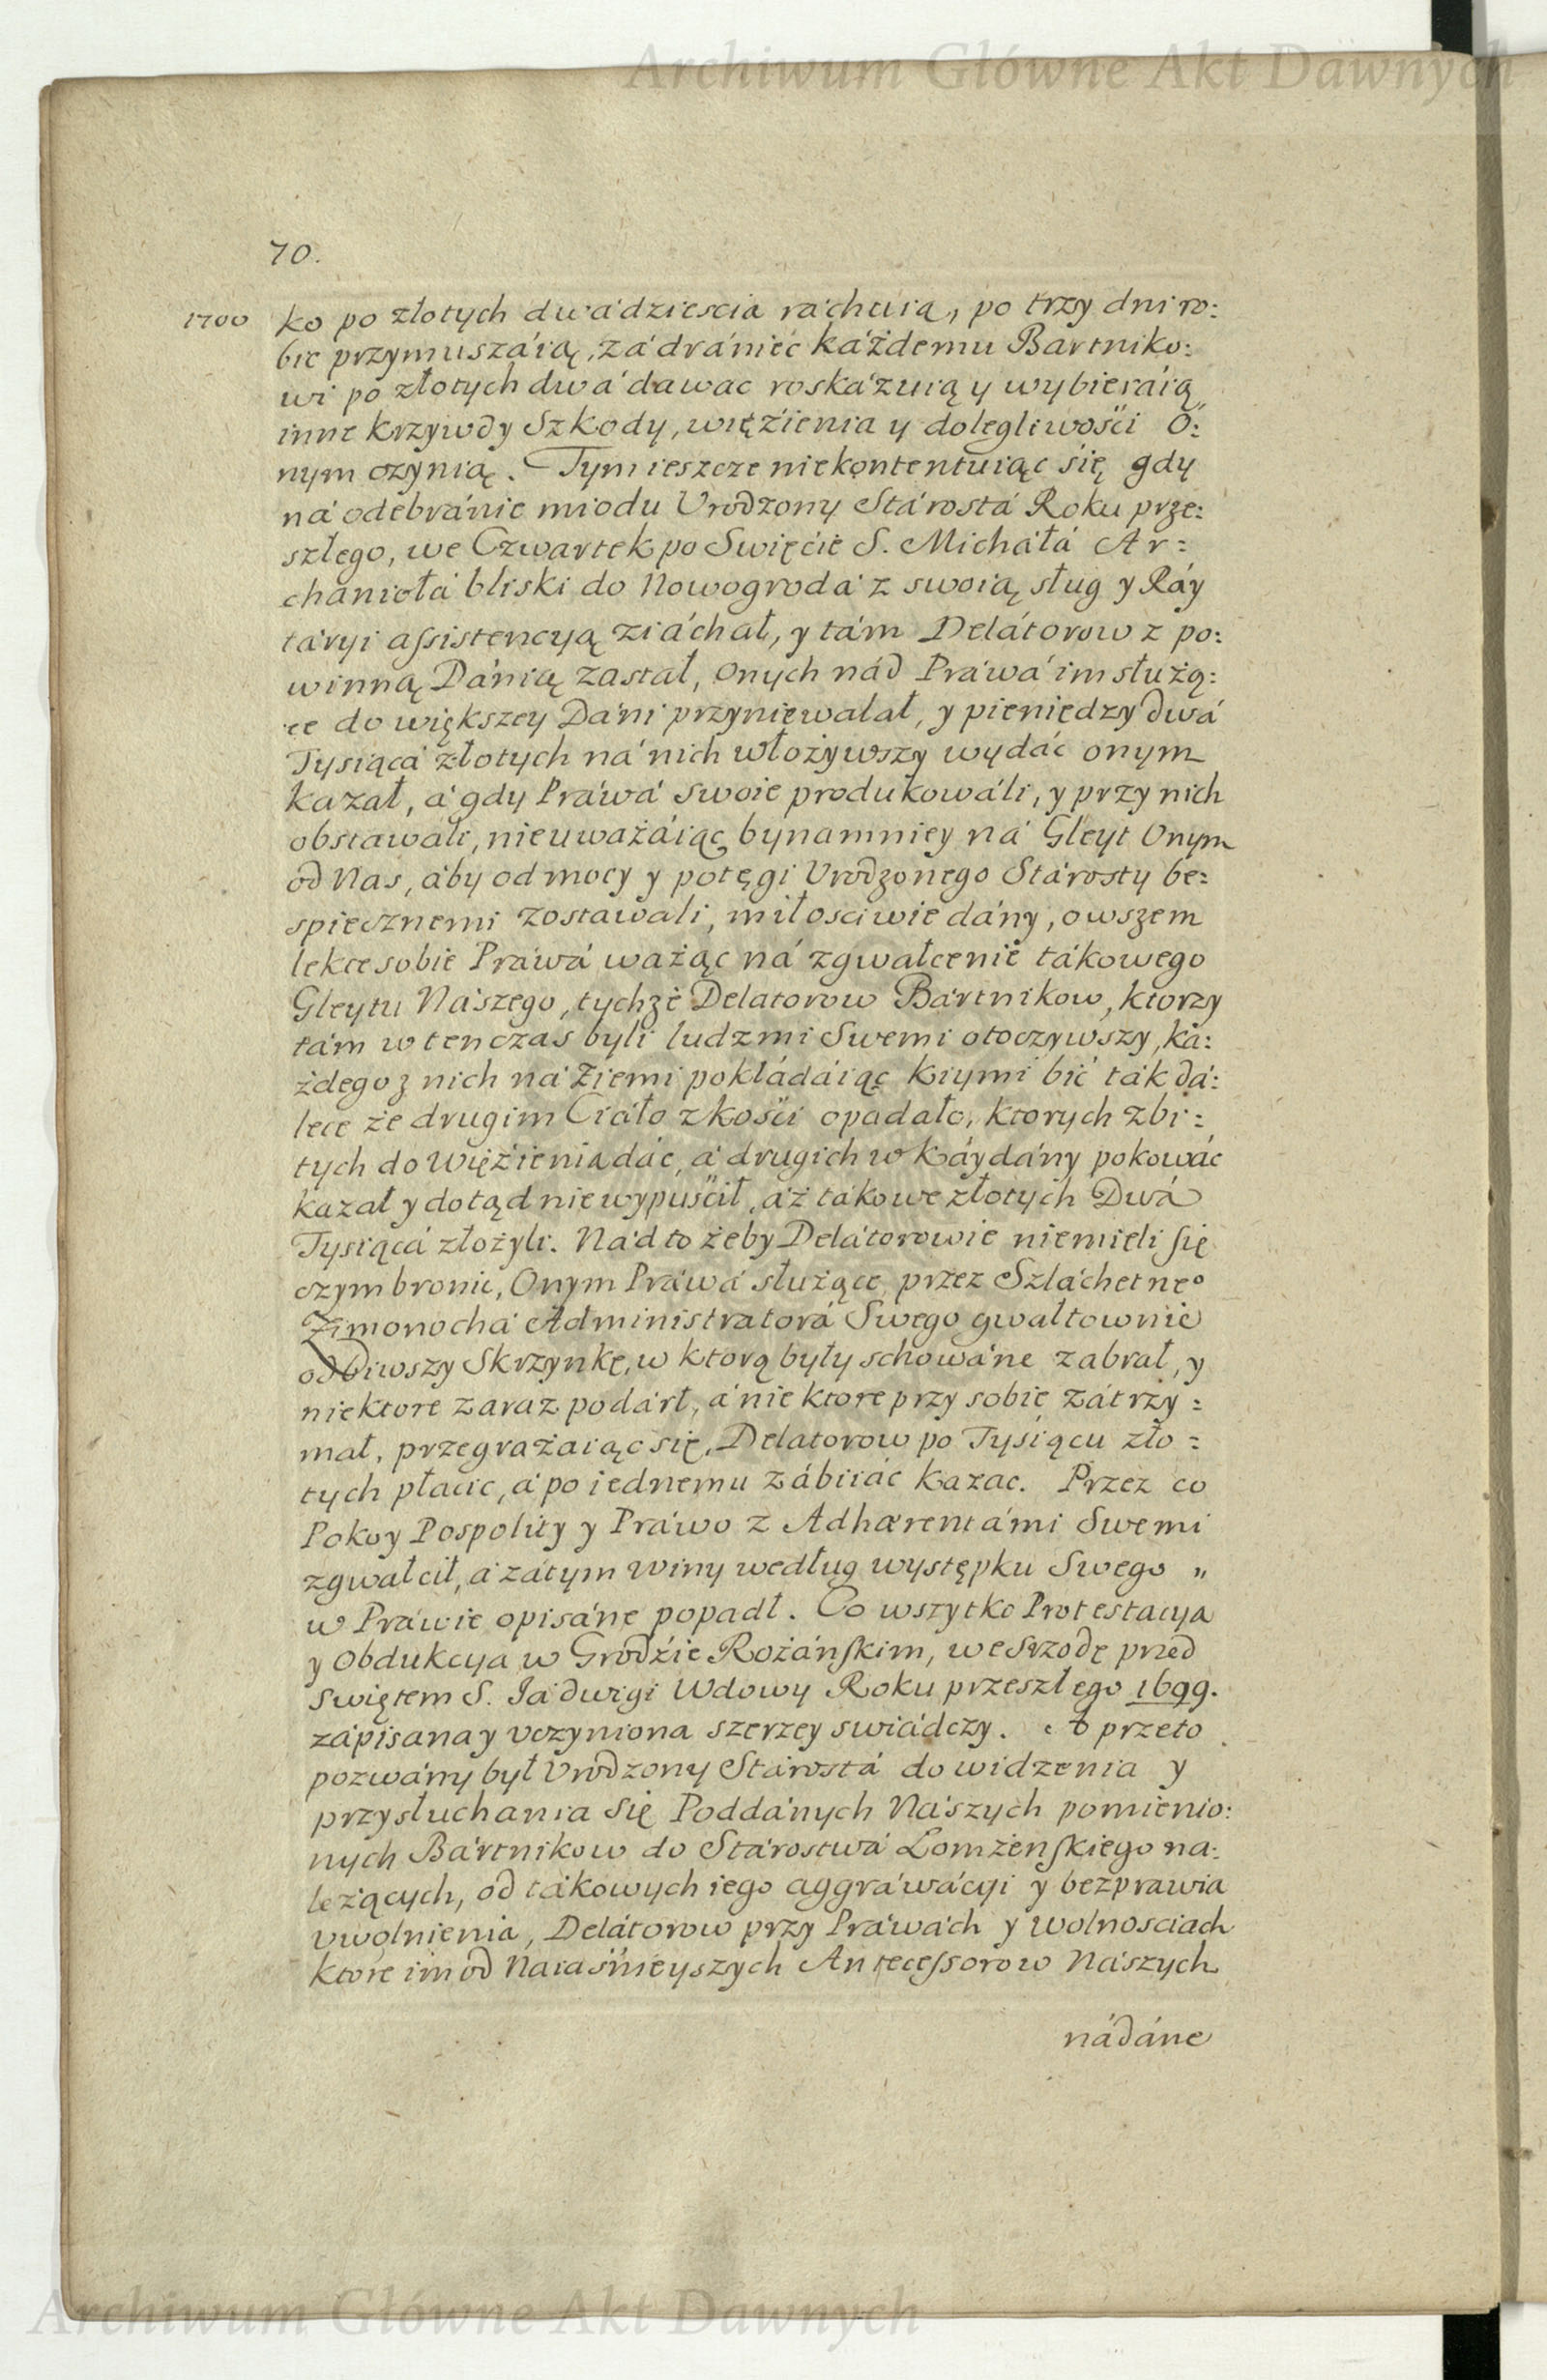 Archiwum Główne Akt Dawnych
70.
1700 ko po złotych dwádziescia ráchuią, po trzy dni ro:
bic przymuszáią, zá dránieć káżdemu Bartniko:
wi po złotych dwá dawac roskázuią y wybieráią
inne krzywdy Szkody, więźienia y dolegliwośći O:
nym czynią. Tym ieszcze niekontentuiąc się gdy
ná odebránie miodu Urodzony Stárostá Roku prze:
szłego, we Czwartek po Swięćie S. Micháłá Ar:
chániołá bliski do Nowogrodá z swoią sług y Ráy
táryi aſsistencyą ziáchał, y tám Delátorow z po:
winną Dánią zastał, onych nád Práwá im służą:
ce do większey Dáni przyniewalał, y pieniędzy dwá
Tysiącá złotych ná nich włożywszy wydác onym
kazał, á gdy Práwá swoie produkowáli, y przy nich
obstawali, nieuważáiąc bynamniey ná Gleyt Onym
od Nas, áby od mocy y potęgi Urodzonego Stárosty be:
spiecznemi zostawali, miłosciwie dány, owszem
lekce sobie Práwá ważąc ná zgwałcenie tákowego
Gleytu Nászego, tychże Delatorow Bártnikow, ktorzy
tám w ten czas byli ludzmi Swemi otoczywszy, ká:
żdego z nich ná Ziemi pokłádáiąc kiymi bić ták dá:
lece że drugim Ciáło z kośći opadało, ktorych zbi:
tych do Więźienia dác, á drugich w Káydány pokowác
kazał y dotąd niewypuśćił, áż tákowe złotych Dwá
Tysiącá złożyli. Nád to żeby Delátorowie niemieli się
czym bronic, Onym Práwá służące przez Szláchetneº
Zimonochá Administratorá Swego gwałtownie
odbiwszy Skrzynkę, w ktorą były schowáne zabrał, y
niektore zaraz podárł, á niektore przy sobie zátrzy:
mał, przegrażaiąc się, Delatorow po Tysiącu zło:
tych płacic, á po iednemu zábiiác kazac. Przez co
Pokoy Pospolity y Práwo z Adhærentámi Swemi
zgwałcił, á zátym winy według występku Swego „
w Práwie opisáne popadł. Co wszytko Protestacya
y Obdukcya w Grodźie Rożánſkim, we Srzodę przed
Swiętem S. Jádwigi Wdowy Roku przeszłego 1699.
zápisana y uczyniona szerzey swiádczy. A przeto
pozwány był Urodzony Stárostá do widzenia y
przysłuchania się Poddánych Nászych pomienio:
nych Bártnikow do Stárostwá Łomżenſkiego na:
leżących, od tákowych iego aggráwácyi y bezprawia
uwolnienia, Delátorow przy Práwách y wolnosciach
ktore im od Naiaśnieyszych Anteceſsorow Nászych
nádáne
Archiwum Główne Akt Dawnych